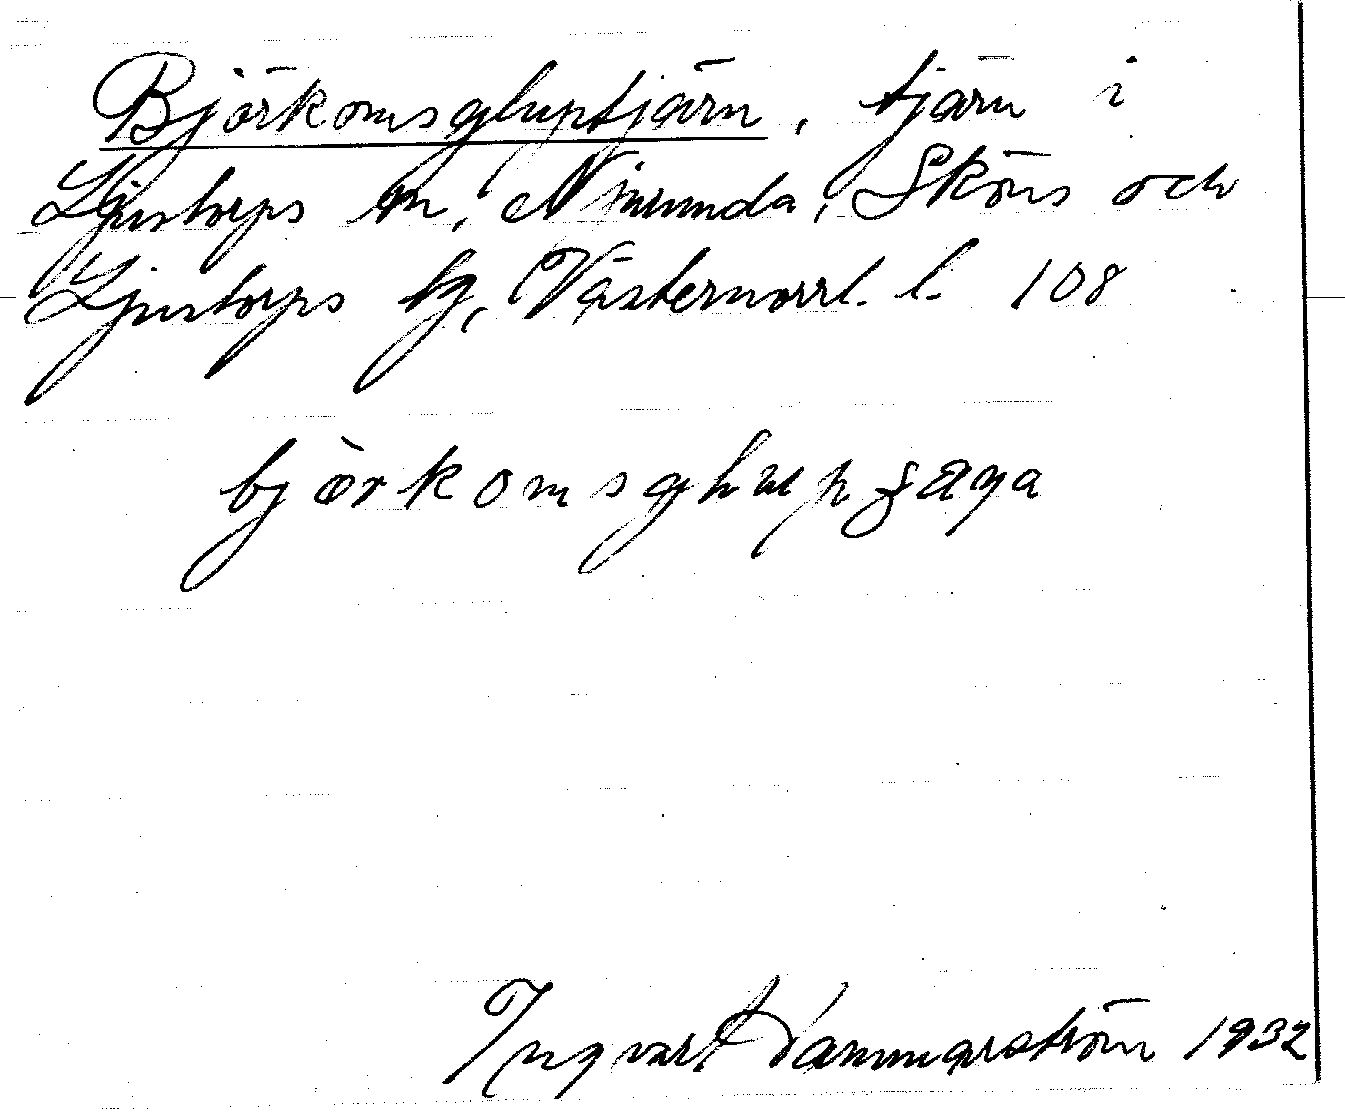 Björkomsgluptjärn, tjärn i
Ljustorps sn, Njurunda, Sköns och
Ljustorps tg, Västernorrl. l. 108
björkomsghup
Ingvart Hammarström 1932